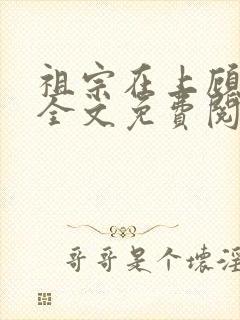 祖宗在上顾
全文免費閱
哥哥是个壞淫